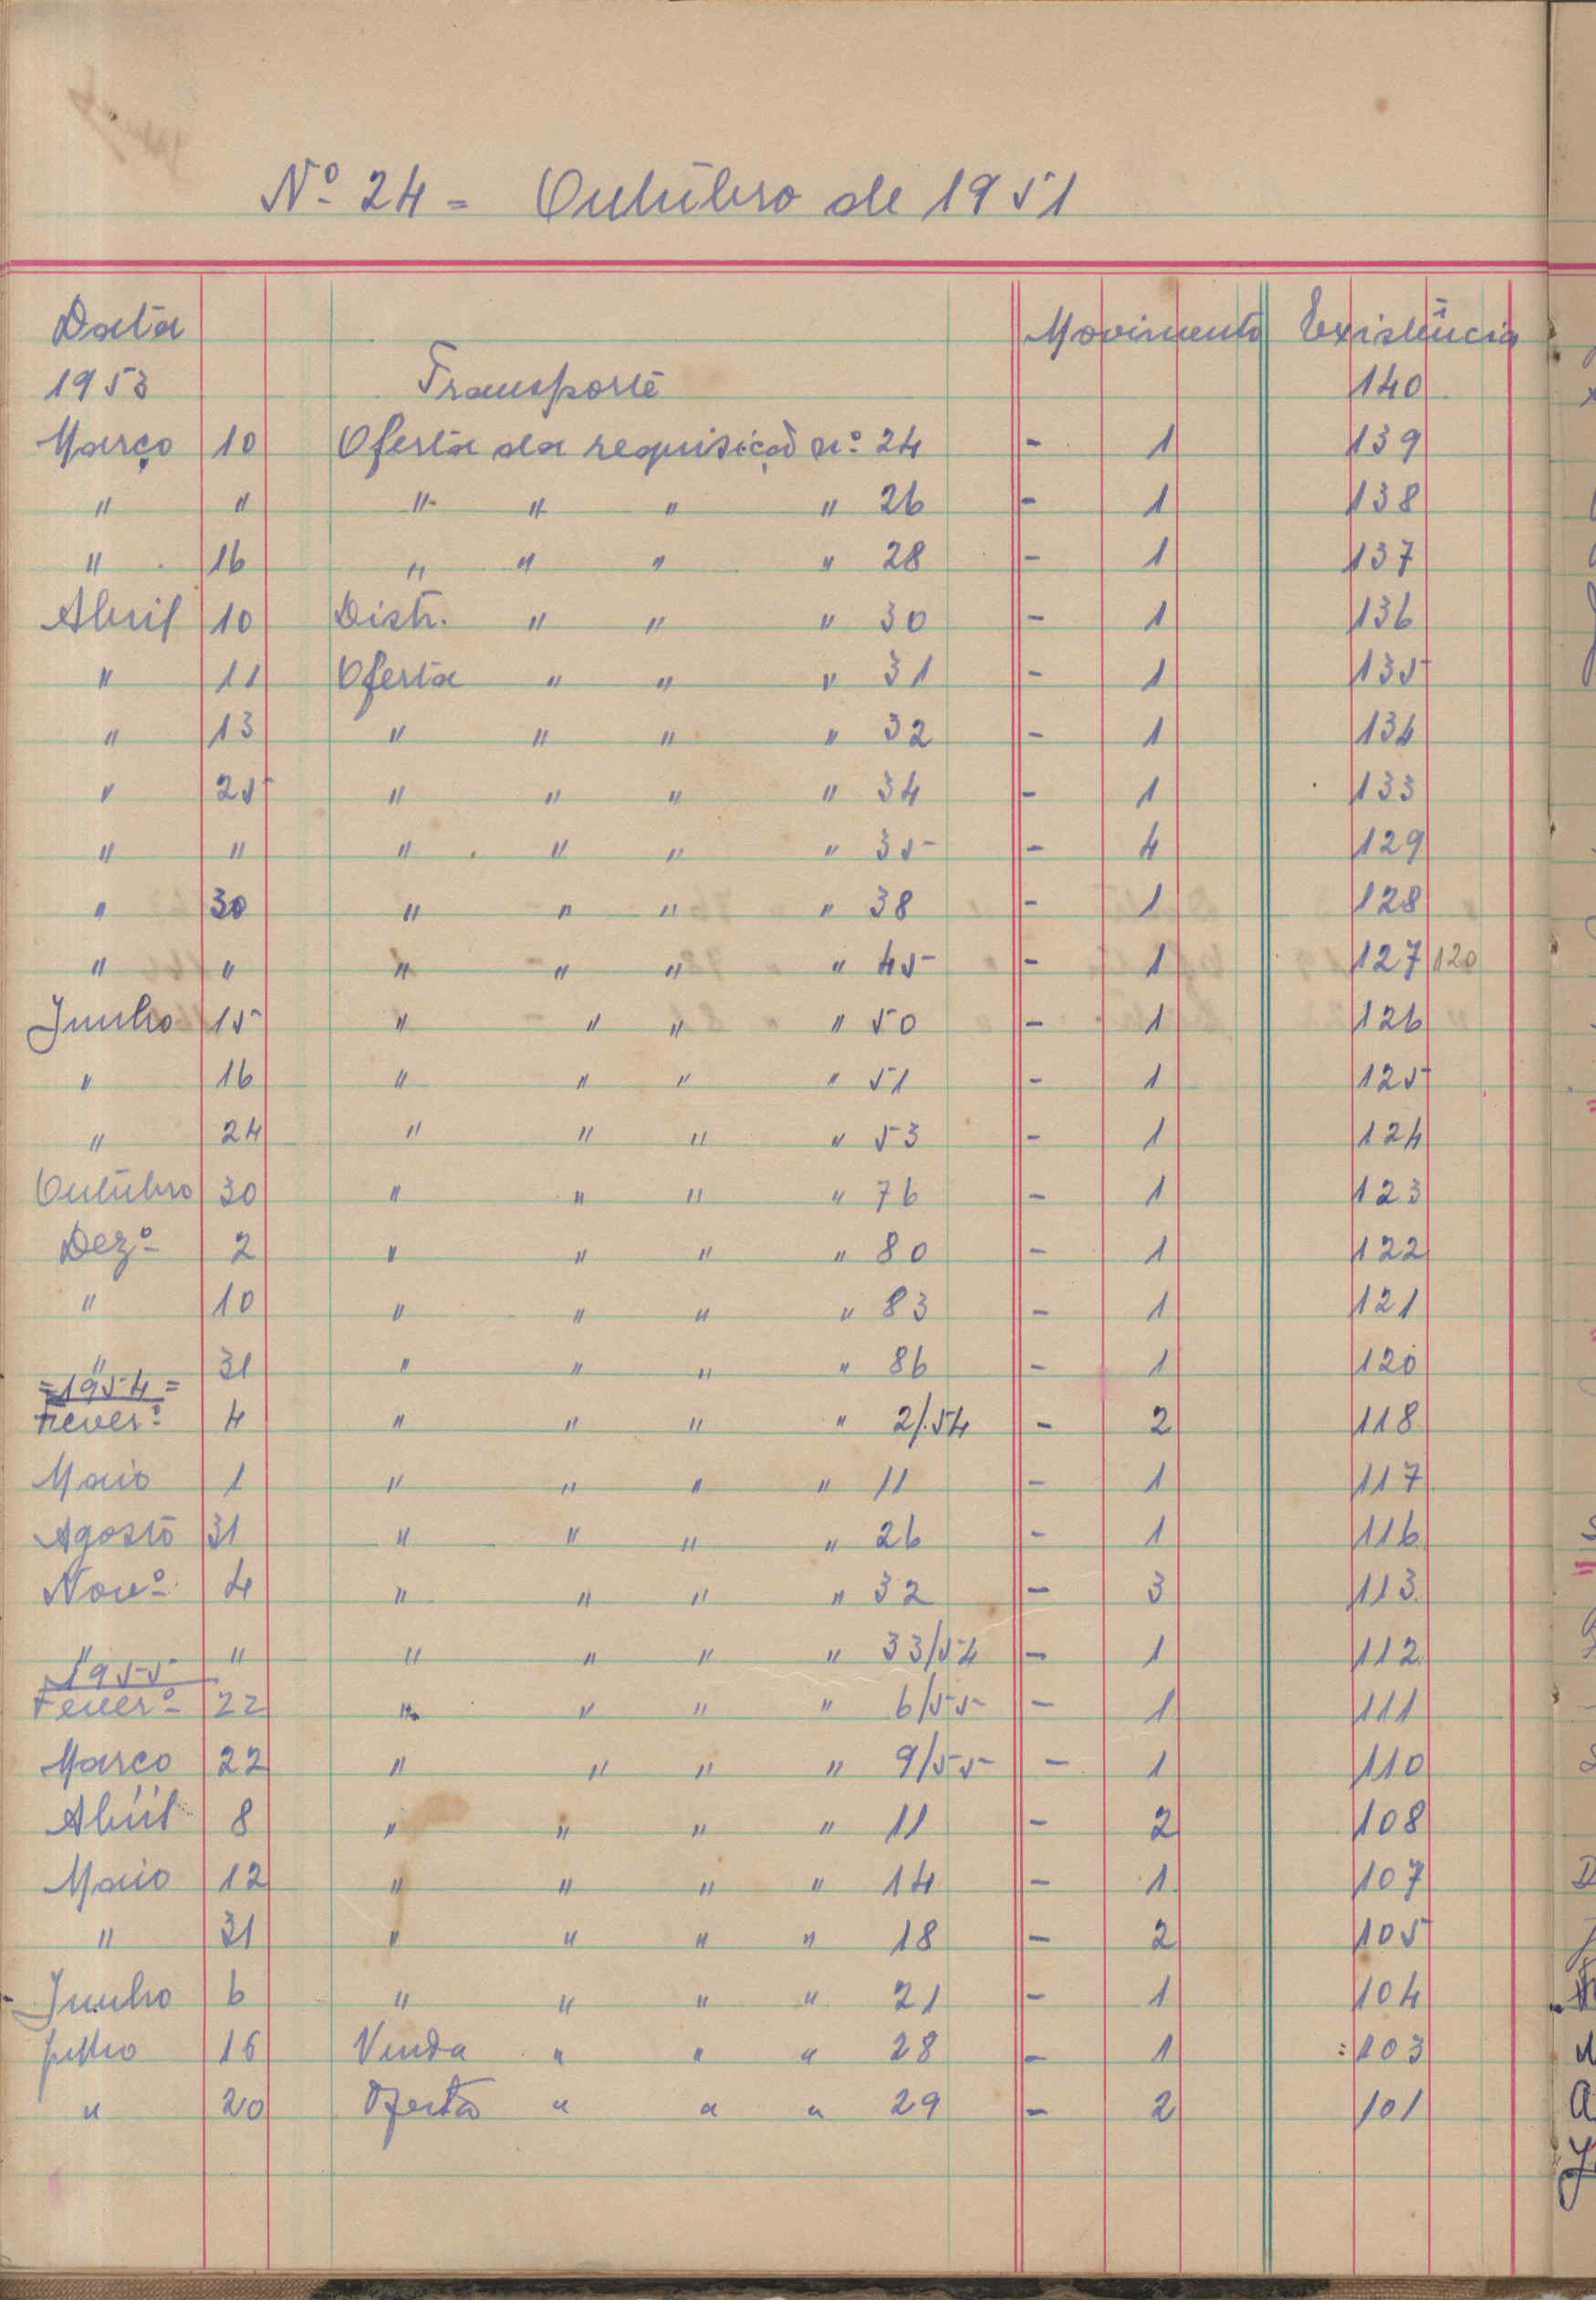 Nº 24 = Outubro de 1951
Data Movimento Existência
1953 Transporte 140
Março 10 Oferta da requisição nº 24 - 1 139
" " " " " " 26 - 1 138
" 16 " " " " 28 - 1 137
Abril 10 Distr. " " " 30 - 1 136
" 11 Oferta " " " 31 - 1 135
" 13 " " " " 32 - 1 134
" 25 " " " " 34 - 1 133
" " " " " " 35 - 4 129
" 30 " " " " 38 - 1 128
" " " " " " 45 - 1 127 120
Junho 15 " " " " 50 - 1 126
" 16 " " " " 51 - 1 125
" 24 " " " " 53 - 1 124
Outubro 30 " " " " 76 - 1 123
Dezº 2 " " " " 80 - 1 122
" 10 " " " " 83 - 1 121
" 31 " " " " 86 - 1 120
=1954=
Feverº 4 " " " " 2/54 - 2 118
Maio 1 " " " " 11 - 1 117
Agosto 31 " " " " 26 - 1 116
Novº 4 " " " " 32 - 3 113
" " " " " " 33/54 - 1 112
1955
Feverº 22 " " " " 6/55 - 1 111
Março 22 " " " " 9/55 - 1 110
Abril 8 " " " " 11 - 2 108
Maio 12 " " " " 14 - 1 107
" 31 " " " " 18 - 2 105
Junho 6 " " " " 21 - 1 104
Julho 16 Venda " " " 28 - 1 103
" 20 Oferta " " " 29 - 2 101